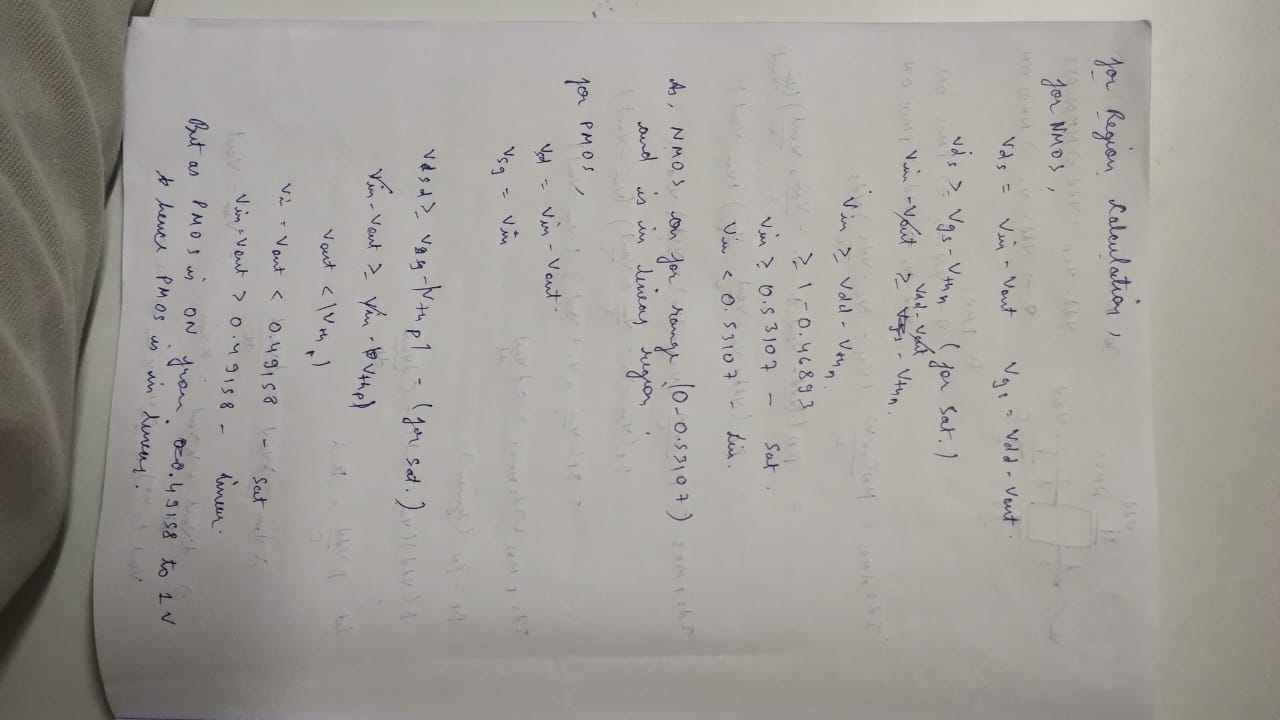 for Region Calculation,
for NMOS,
Vds = Vin - Vout Vgs = Vdd - Vout
Vds ≥ Vgs - Vthn (for sat.)
Vin - Vout ≥ Vdd - Vout - Vthn.
Vin ≥ Vdd - Vthn
≥ 1 - 0.46893
Vin ≥ 0.53107 - Sat.
Vin < 0.53107 - Lin.
As, NMOS on for range (0-0.53107)
and is in linear region
for PMOS,
Vsd = Vin - Vout.
Vsg = Vin
Vdsd ≥ Vsg - |Vthp| - (for sat.)
Vin - Vout ≥ Vin - |Vthp|
Vout < |Vthp|
Vin = Vout < 0.49158 - Sat
Vin = Vout > 0.49158 - linear.
But as PMOS is ON from 0.49158 to 1V
& hence PMOS is in linear.